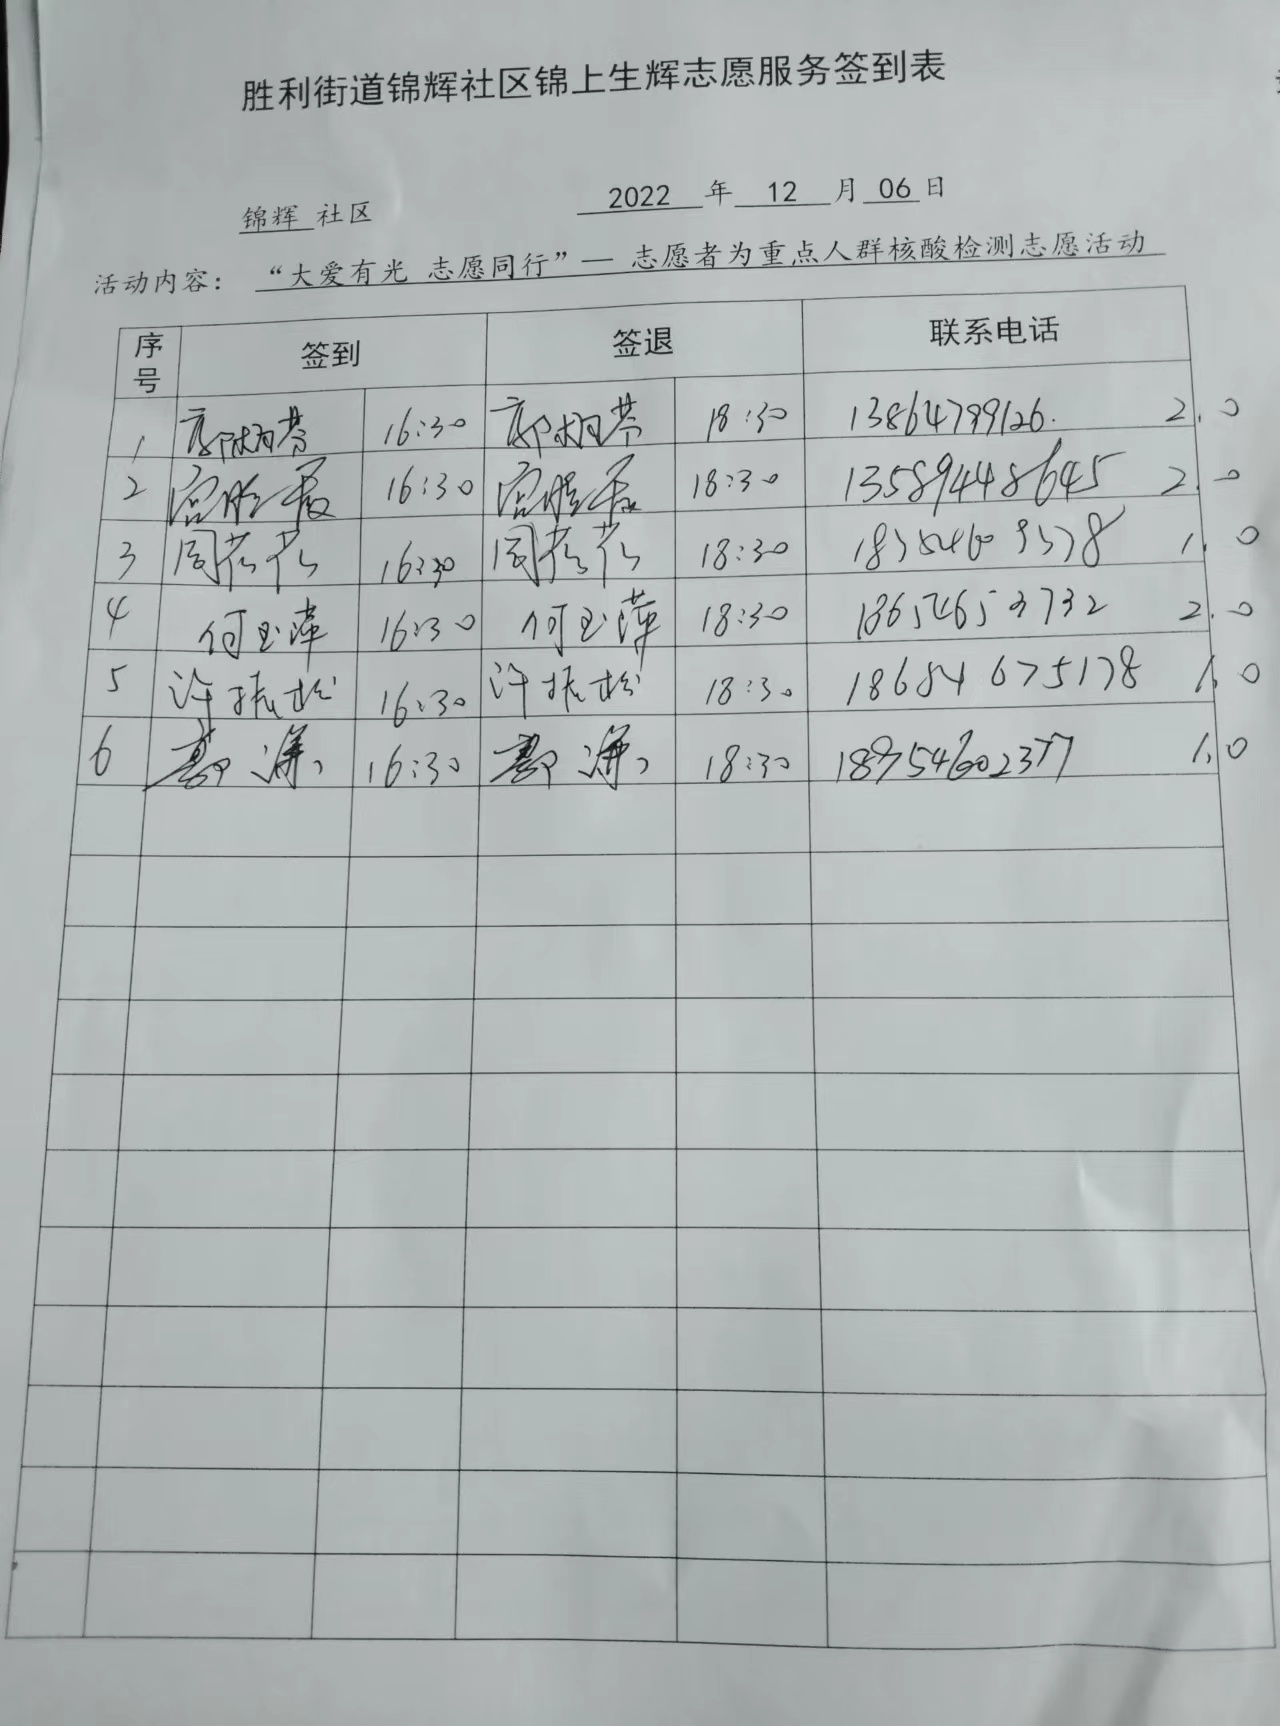 胜利街道锦辉社区锦上生辉志愿服务签到表
锦辉 社区 2022 年 12 月 06 日
活动内容： “大爱有光 志愿同行”— 志愿者为重点人群核酸检测志愿活动
序号 签到 签退 联系电话
1 16:30 18:30 13864799126. 2.0
2 16:30 18:30 13589448645 2.0
3 16:30 18:30 1.0
4 何玉萍 16:30 何玉萍 18:30 18654653732 2.0
5 许振松 16:30 许振松 18:30 18684675178 1.0
6 16:30 18:30 1.0